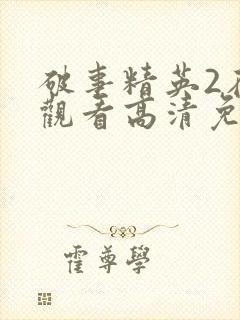 破事精英2
觀看高清免
霍尊學